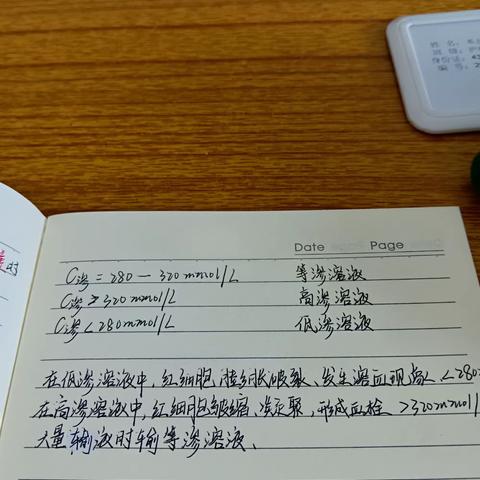 姓 名：
班 级：护
身份证：43
编 号：2
Date Page
C渗 = 280 — 320 mmol/L 等渗溶液
C渗 > 320 mmol/L 高渗溶液
C渗 < 280 mmol/L 低渗溶液
在低渗溶液中，红细胞膨胀破裂、发生溶血现象、<280
在高渗溶液中，红细胞皱缩、凝聚，形成血栓 >320mmol/
大量输液时输等渗溶液、